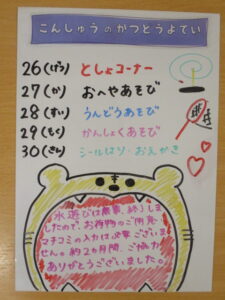 こんしゅうのかつどうよてい
26(げつ) としょコーナー
27(か) おへやあそび
28(すい) うんどうあそび
29(もく) かんしょくあそび
30(きん) シールはり・おえかき
水遊びは無事、終了しま
したので、お荷物のご用意、
マチコミの入力は必要ございま
せん。約2カ月間、ご協力
ありがとうございました。